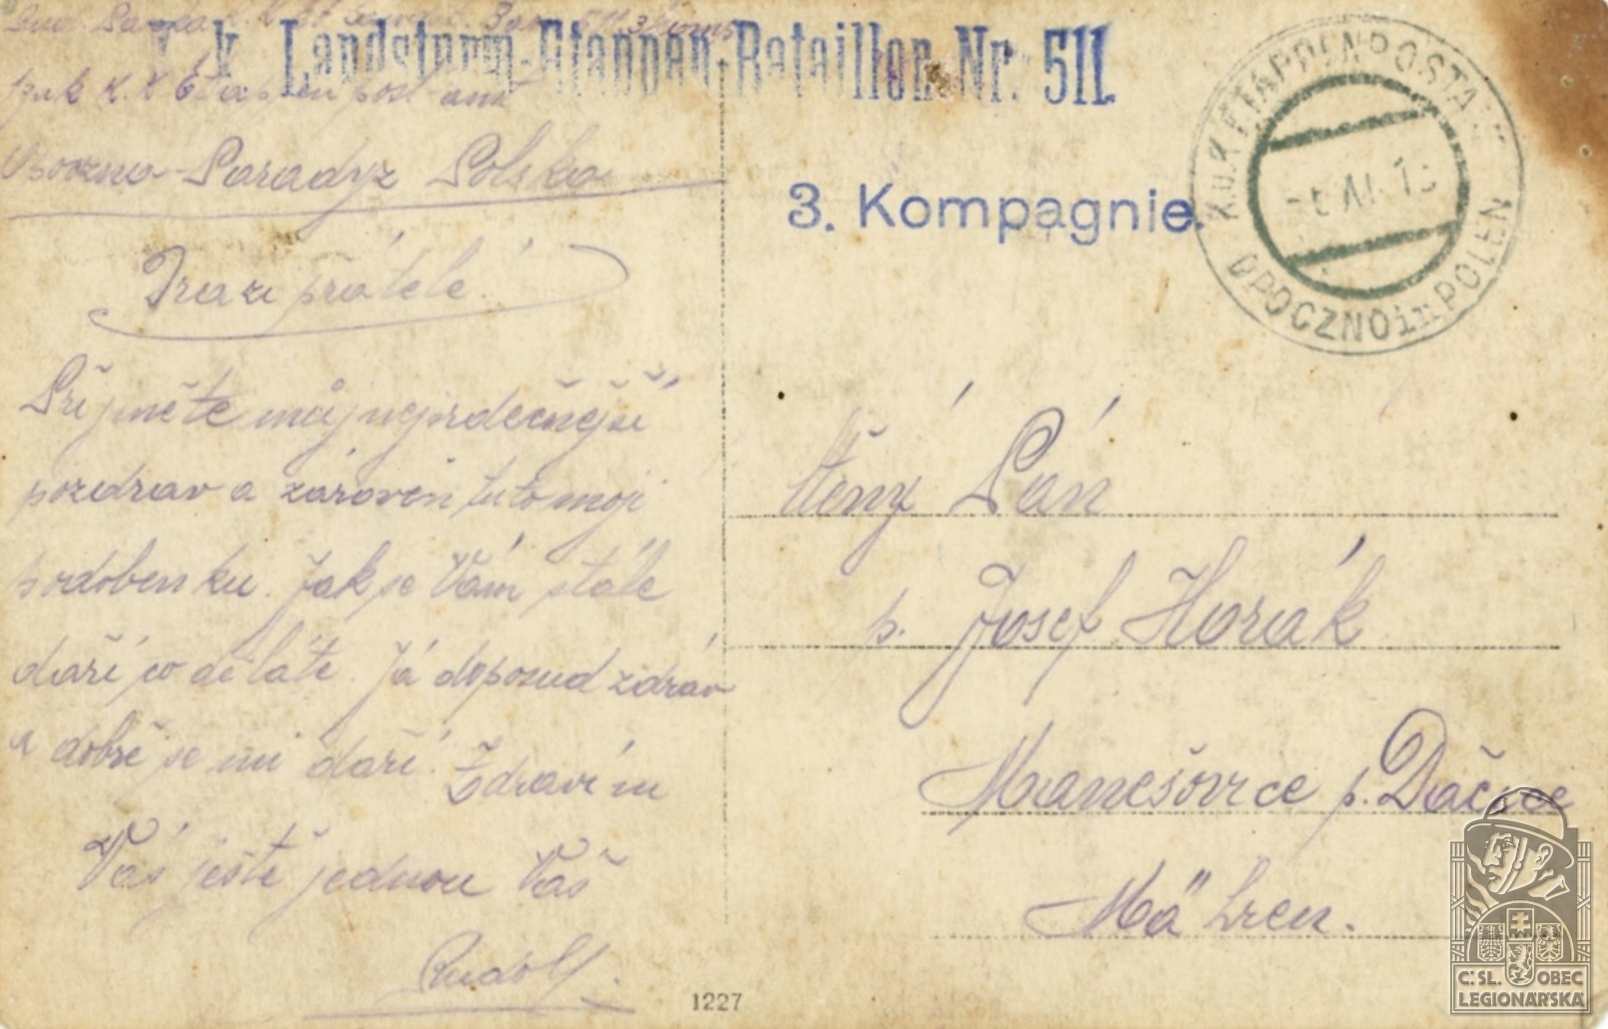 K. k. Landsturm-Etappen-Bataillon Nr. 511.
3. Kompagnie.
K.u.K. ETAPPENPOSTAMT
OPOCZNO in POLEN
Opoczno-Paradyz Polska
Drazí přátelé!
Přijměte můj nejsrdečnější
pozdrav a zároveň tuto moji
podobenku. Jak se Vám stále
daří co děláte. Já doposud zdráv
a dobře se mi daří. Zdravím
Vás ještě jednou Váš
Rudolf.
1227
Ctěný Pán
p. Josef Horák
Manešovice p. Dačice
Mähren.
Č. SL. OBEC
LEGIONÁŘSKÁ